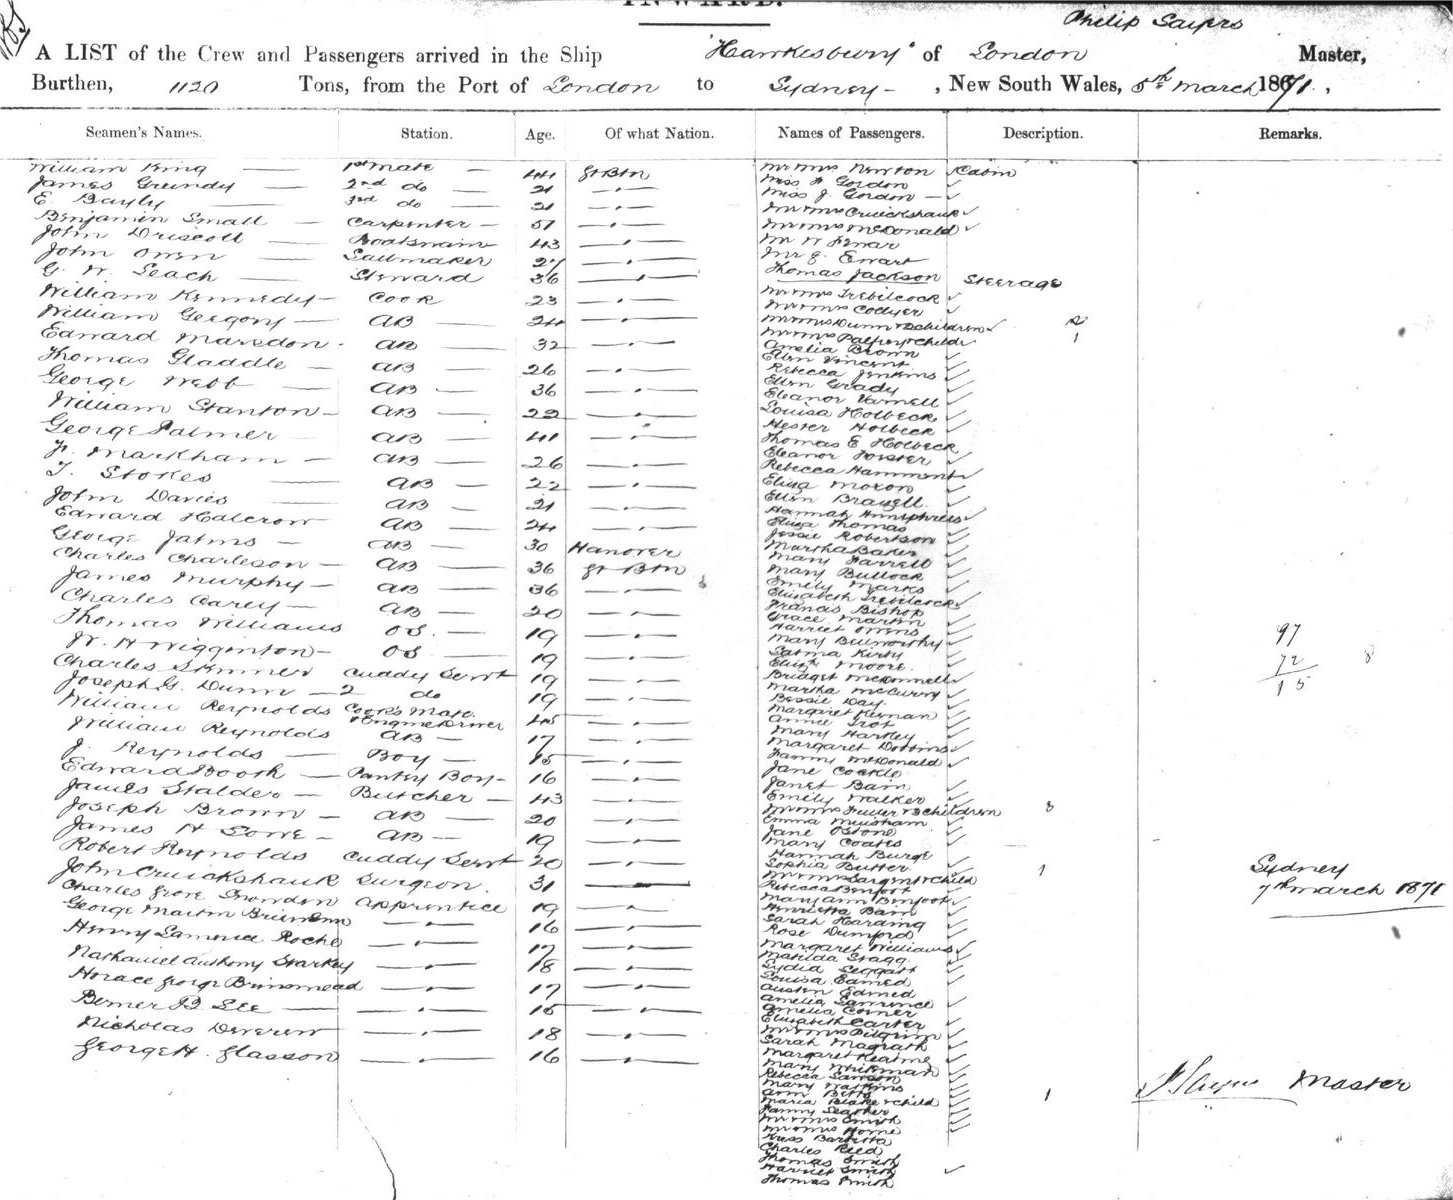 INWARD.
Philip Sayers
A LIST of the Crew and Passengers arrived in the Ship "Hawkesbury" of London Master,
Burthen, 1120 Tons, from the Port of London to Sydney - , New South Wales, 5th March 1871.,
Seamen's Names. Station. Age. Of what Nation. Names of Passengers. Description. Remarks.
William King 1st Mate 44 Gt Btn
James Grundy 2nd do 21
E. Bayly 3rd do 21
Benjamin Small Carpenter 51
John Driscoll Boatswain 43
John Owen Sailmaker 27
G. W. Leach Steward 36
William Kennedy Cook 23
William Gregory AB 24
Edward Marsdon AB 32
Thomas Gladdle AB 26
George Webb AB 36
William Stanton AB 22
George Palmer AB 41
F. Markham AB 26
T. Stokes AB 22
John Davies AB 21
Edward Halcrow AB 24
George Jahms AB 30 Hanover
Charles Charleson AB 36 Gt Btn
James Murphy AB 36
Charles Carey AB 20
Thomas Williams OS. 19
W. H Wigginton OS 19
Charles Skinner Cuddy Servt 19
Joseph G. Dunn 2 do 19
William Reynolds Cook's Mate & Engine Driver 45
William Reynolds AB 17
J. Reynolds Boy 15
Edward Booth Pantry Boy 16
James Stalder Butcher 43
Joseph Brown AB 20
James H Lowe AB 19
Robert Reynolds Cuddy Servt 20
John Cruickshank Surgeon. 31
Charles Apprentice 19
George Martin 16
Henry Roche 17
Nathaniel Anthony Starkey 18
Horace George Brinsmead 17
B. Lee 15
Nicholas Devereux 18
George H. Glasson 16
Mr Mrs Newton Cabin
Miss F Gordon
Miss J. Gordon
Mr Mrs Cruickshank
Mr Mrs McDonald
Mr W
Mr G. Ewart
Thomas Jackson Steerage
Mr Mrs Trebilcock
Mr Mrs Collyer
Mr Mrs Dunn & 2 children 2
Mr Mrs Palfrey & child 1
Amelia Brown
Ellen Vincent
Rebecca Jenkins
Ellen Grady
Eleanor Varnell
Louisa Holbeck
Hester Holbeck
Thomas E Holbeck
Eleanor Forster
Rebecca Hammont
Eliza Moxon
Ellen Brazell
Hannah Humphries
Eliza Thomas
Jessie Robertson
Martha Baker
Mary Farrell
Mary Bullock
Emily Marks
Elizabeth Trebilcock
Francis Bishop
Grace Martin
Harriet Owens
Mary Belworthy
Kirby
Elizth Moore.
Bridget McConnell
Martha McCurry
Bessie Day.
Margaret Kernan
Annie Trot
Mary Hartley
Margaret Dobbins
Fanny McDonald
Jane Cockle
Janet Bain
Emily Walker
Mr Mrs Fuller & 3 children 3
Emma
Jane Ostone
Mary Coates
Hannah Burge
Sophia Butter
Mr Mrs Sargent & Child 1
Rebecca Benfoot
Mary Ann Benfoot
Henrietta Bain
Sarah Harding
Rose Dumford
Margaret Williams
Matilda Stagg
Lydia Leggatt
Louisa Edmed
Austen Edmed
Amelia Lawrence
Amelia Corner
Elizabeth Carter
Mr Mrs Pilgrim
Sarah Magrath
Margaret Keatme
Mary Whikman
Rebecca Lawson
Mary Watkins
Ann Betts
Maria Blake & Child 1
Fanny Leather
Mr Mrs Smith
Mr Mrs Horne
Miss Barletta
Charles Reed
Thomas Smith
Harriet Smith
Thomas Smith
97
72
15
8
Sydney
7th March 1871
P Sayers Master